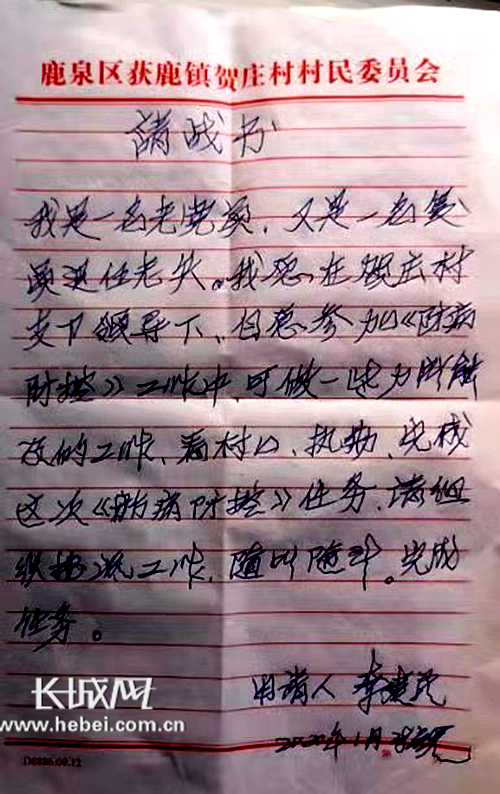 鹿泉区获鹿镇贺庄村村民委员会
请战书
我是一名老党员，又是一名复
员退伍老兵。我愿在贺庄村
支下领导下、自愿参加《防病
防控》工作中，可做一些力所能
及的工作、看村口、执勤、完成
这次《防病防控》任务，请组
织批准工作，随叫随到。完成
任务。
申请人 李
2020年1月
长城网
www.hebei.com.cn
D0886.09.12